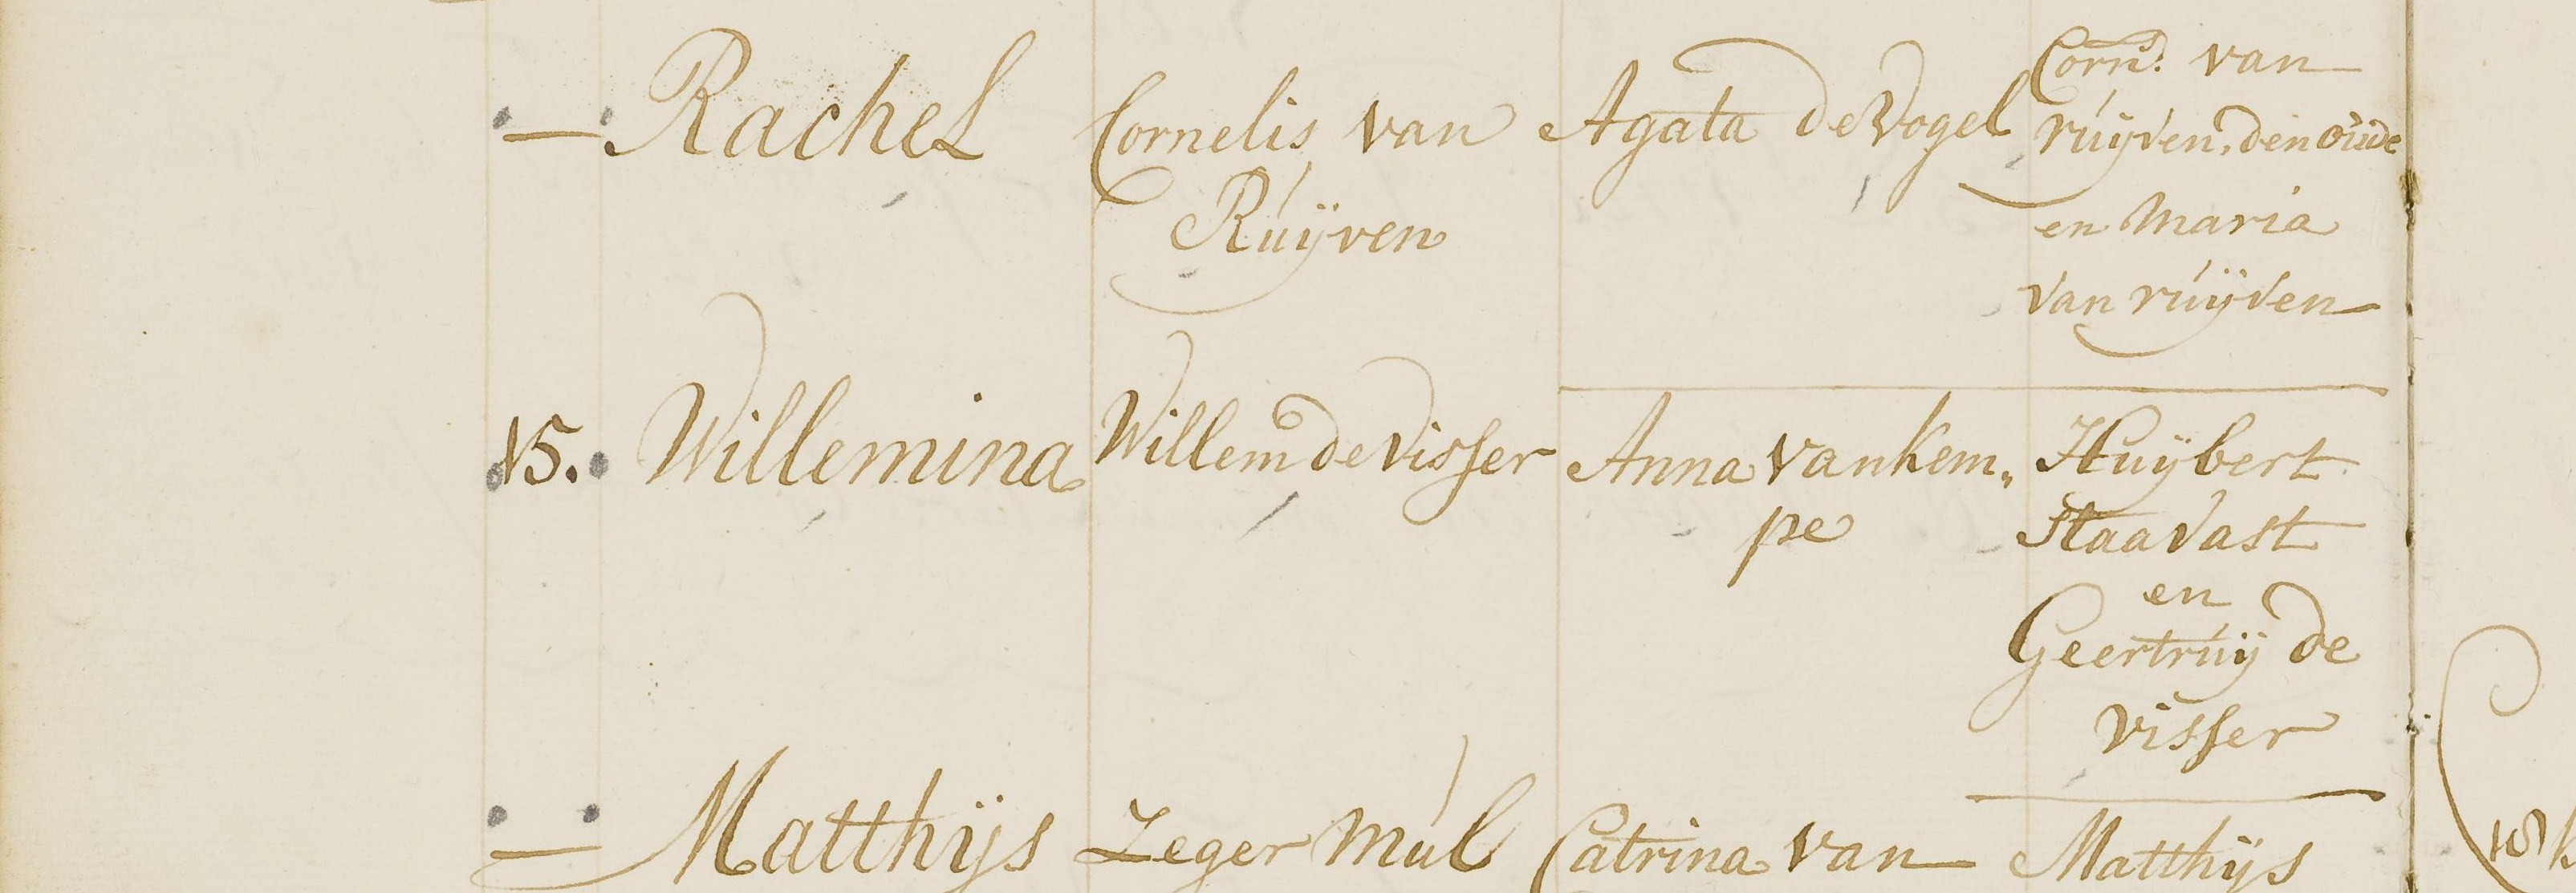 — Rachel Cornelis van Agata de Vogel Corns: van
Ruÿven ruÿven, den oude
en Maria
van ruÿven
15. Willemina Willem de Visser Anna van Kem„ Huÿbert
pe Staavast
en
Geertruÿ de
Visser
— Matthÿs Zeger Mul Catrina van Matthÿs